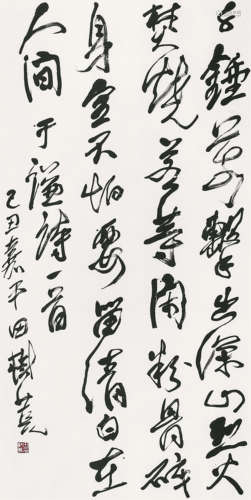 千錘萬擊出深山烈火
焚燒若等閑粉骨碎
身全不怕要留清白在
人間于謙詩一首
己丑嘉平田樹萇